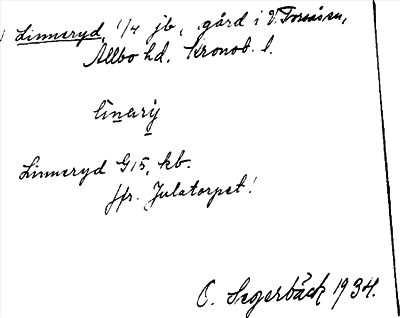 Linneryd, 1/4 jb, gård i V. Torsås sn,
Allbo hd. Kronob. l.
linarij
Linneryd G15, kb.
jfr. Julatorpet!
C. Segerbäck 1934.